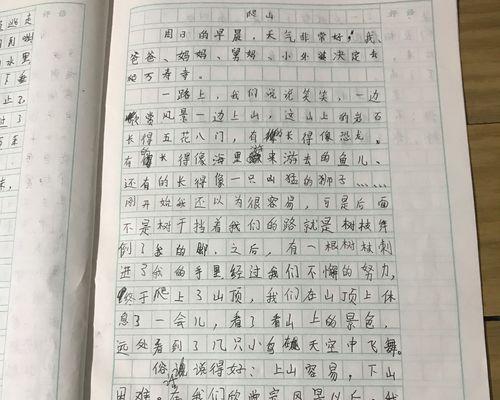 爬山
周日的早晨，天气非常好，我、
爸爸、妈妈、舅妈、小外婆决定去
爬万寿寺。
一路上，我们说说笑笑，一边
赏风景一边上山，这山上的岩石
长得五花八门，有的长得像恐龙，
有的长得像海里游来游去的鱼儿、
还有的长得像一只凶猛的狮子……
刚开始我还以为很容易，可是后面
不是树干挡着我们的路就是树枝绊
倒了我的脚，之后，有一根树枝刺
进了我的手里经过我们不懈的努力，
终于爬上了山顶，我们在山顶上休
息了一会儿，看了看山上的景色，
远处看到了几只小鸟在天空中飞舞。
俗话说得好：上山容易，下山
困难。在我们的赏完风景以后，我